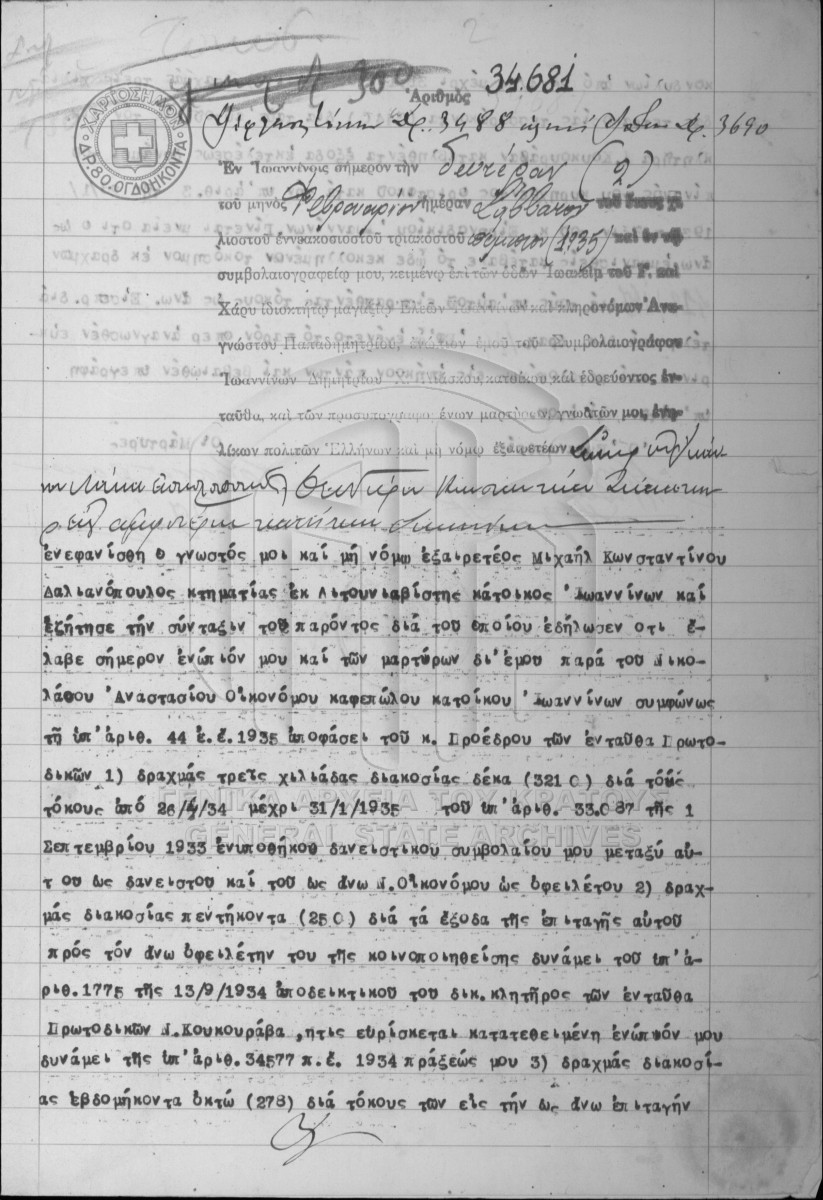 Ἀριθμὸς 34.681
3488 3690
ΧΑΡΤΟΣΗΜΟΝ
ΔΡ.80.ΟΓΔΟΗΚΟΝΤΑ
Ἐν Ἰωαννίνοις σήμερον τὴν δευτέραν (2)
τοῦ μηνὸς Φεβρουαρίου ἡμέραν Σάββατον τοῦ ἔτους χι
λιοστοῦ ἐννεακοσιοστοῦ τριακοστοῦ πέμπτου (1935) καὶ ἐν τῷ
συμβολαιογραφείῳ μου, κειμένῳ ἐπὶ τῶν ὁδῶν Ἰωακεὶμ τοῦ Γ. καὶ
Χάρυ ἰδιοκτήτῳ μαγαζίῳ Ἐλεῶν Ἰωαννίνων καὶ κληρονόμων Ἀνα-
γνώστου Παπαδημητρίου, ἐνώπιον ἐμοῦ τοῦ Συμβολαιογράφου
Ἰωαννίνων Δημητρίου Χ. κατοίκου καὶ ἑδρεύοντος ἐν-
ταῦθα, καὶ τῶν προσυπογραφομένων μαρτύρων γνωστῶν μοι, ἐνη-
λίκων πολιτῶν Ἑλλήνων καὶ μὴ νόμῳ ἐξαιρετέων
ἐνεφανίσθη ὁ γνωστός μοι καὶ μή νόμῳ ἐξαιρετέος Μιχαήλ Κωνσταντίνου
Δαλιανόπουλος κτηματίας ἐκ Λιτουνιαβίστης κάτοικος Ἰωαννίνων καί
ἐζήτησε τήν σύνταξιν τοῦ παρόντος διά τοῦ ὁποίου ἐδήλωσεν οτι ἔ-
λαβε σήμερον ἐνώπιόν μου καί τῶν μαρτύρων δι'ἐμοῦ παρά τοῦ Νικο-
λάου Ἀναστασίου Οἰκονόμου καφεπώλου κατοίκου Ἰωαννίνων συμφώνως
τῇ ὑπ'ἀριθ. 44 ἐ.ἔ.1935 ἀποφάσει τοῦ κ. Προέδρου τῶν ἐνταῦθα Πρωτο-
δικῶν 1) δραχμάς τρεῖς χιλιάδας διακοσίας δέκα (3210) διά τούς
τόκους ἀπό 26/4/34 μέχρι 31/1/1935 τοῦ ὑπ'ἀριθ. 33.087 τῆς 1
Σεπτεμβρίου 1933 ἐνυποθήκου δανειστικοῦ συμβολαίου μου μεταξύ αὐ-
τ οῦ ὡς δανειστοῦ καί τοῦ ὡς ἄνω Ν.Οἰκονόμου ὡς ὀφειλέτου 2) δραχ-
μάς διακοσίας πεντήκοντα (250) διά τά ἔξοδα τῆς ἐπιταγῆς αὐτοῦ
πρός τόν ἄνω ὀφειλέτην του τῆς κοινοποιηθείσης δυνάμει τοῦ ὑπ'ἀ-
ριθ.1775 τῆς 13/9/1934 ἀποδεικτικοῦ τοῦ δικ.κλητῆρος τῶν ἐνταῦθα
Πρωτοδικῶν Ν.Κουκουράβα,ἥτις εὑρίσκεται κατατεθειμένη ἐνώπιόν μου
δυνάμει τῆς ὑπ'ἀριθ.34577 π.ἔ. 1934 πράξεώς μου 3) δραχμάς διακοσί-
ας ἑβδομήκοντα ὀκτώ (278) διά τόκους τῶν εἰς τήν ὡς ἄνω ἐπιταγήν
ΓΕΝΙΚΑ ΑΡΧΕΙΑ ΤΟΥ ΚΡΑΤΟΥΣ
GENERAL STATE ARCHIVES